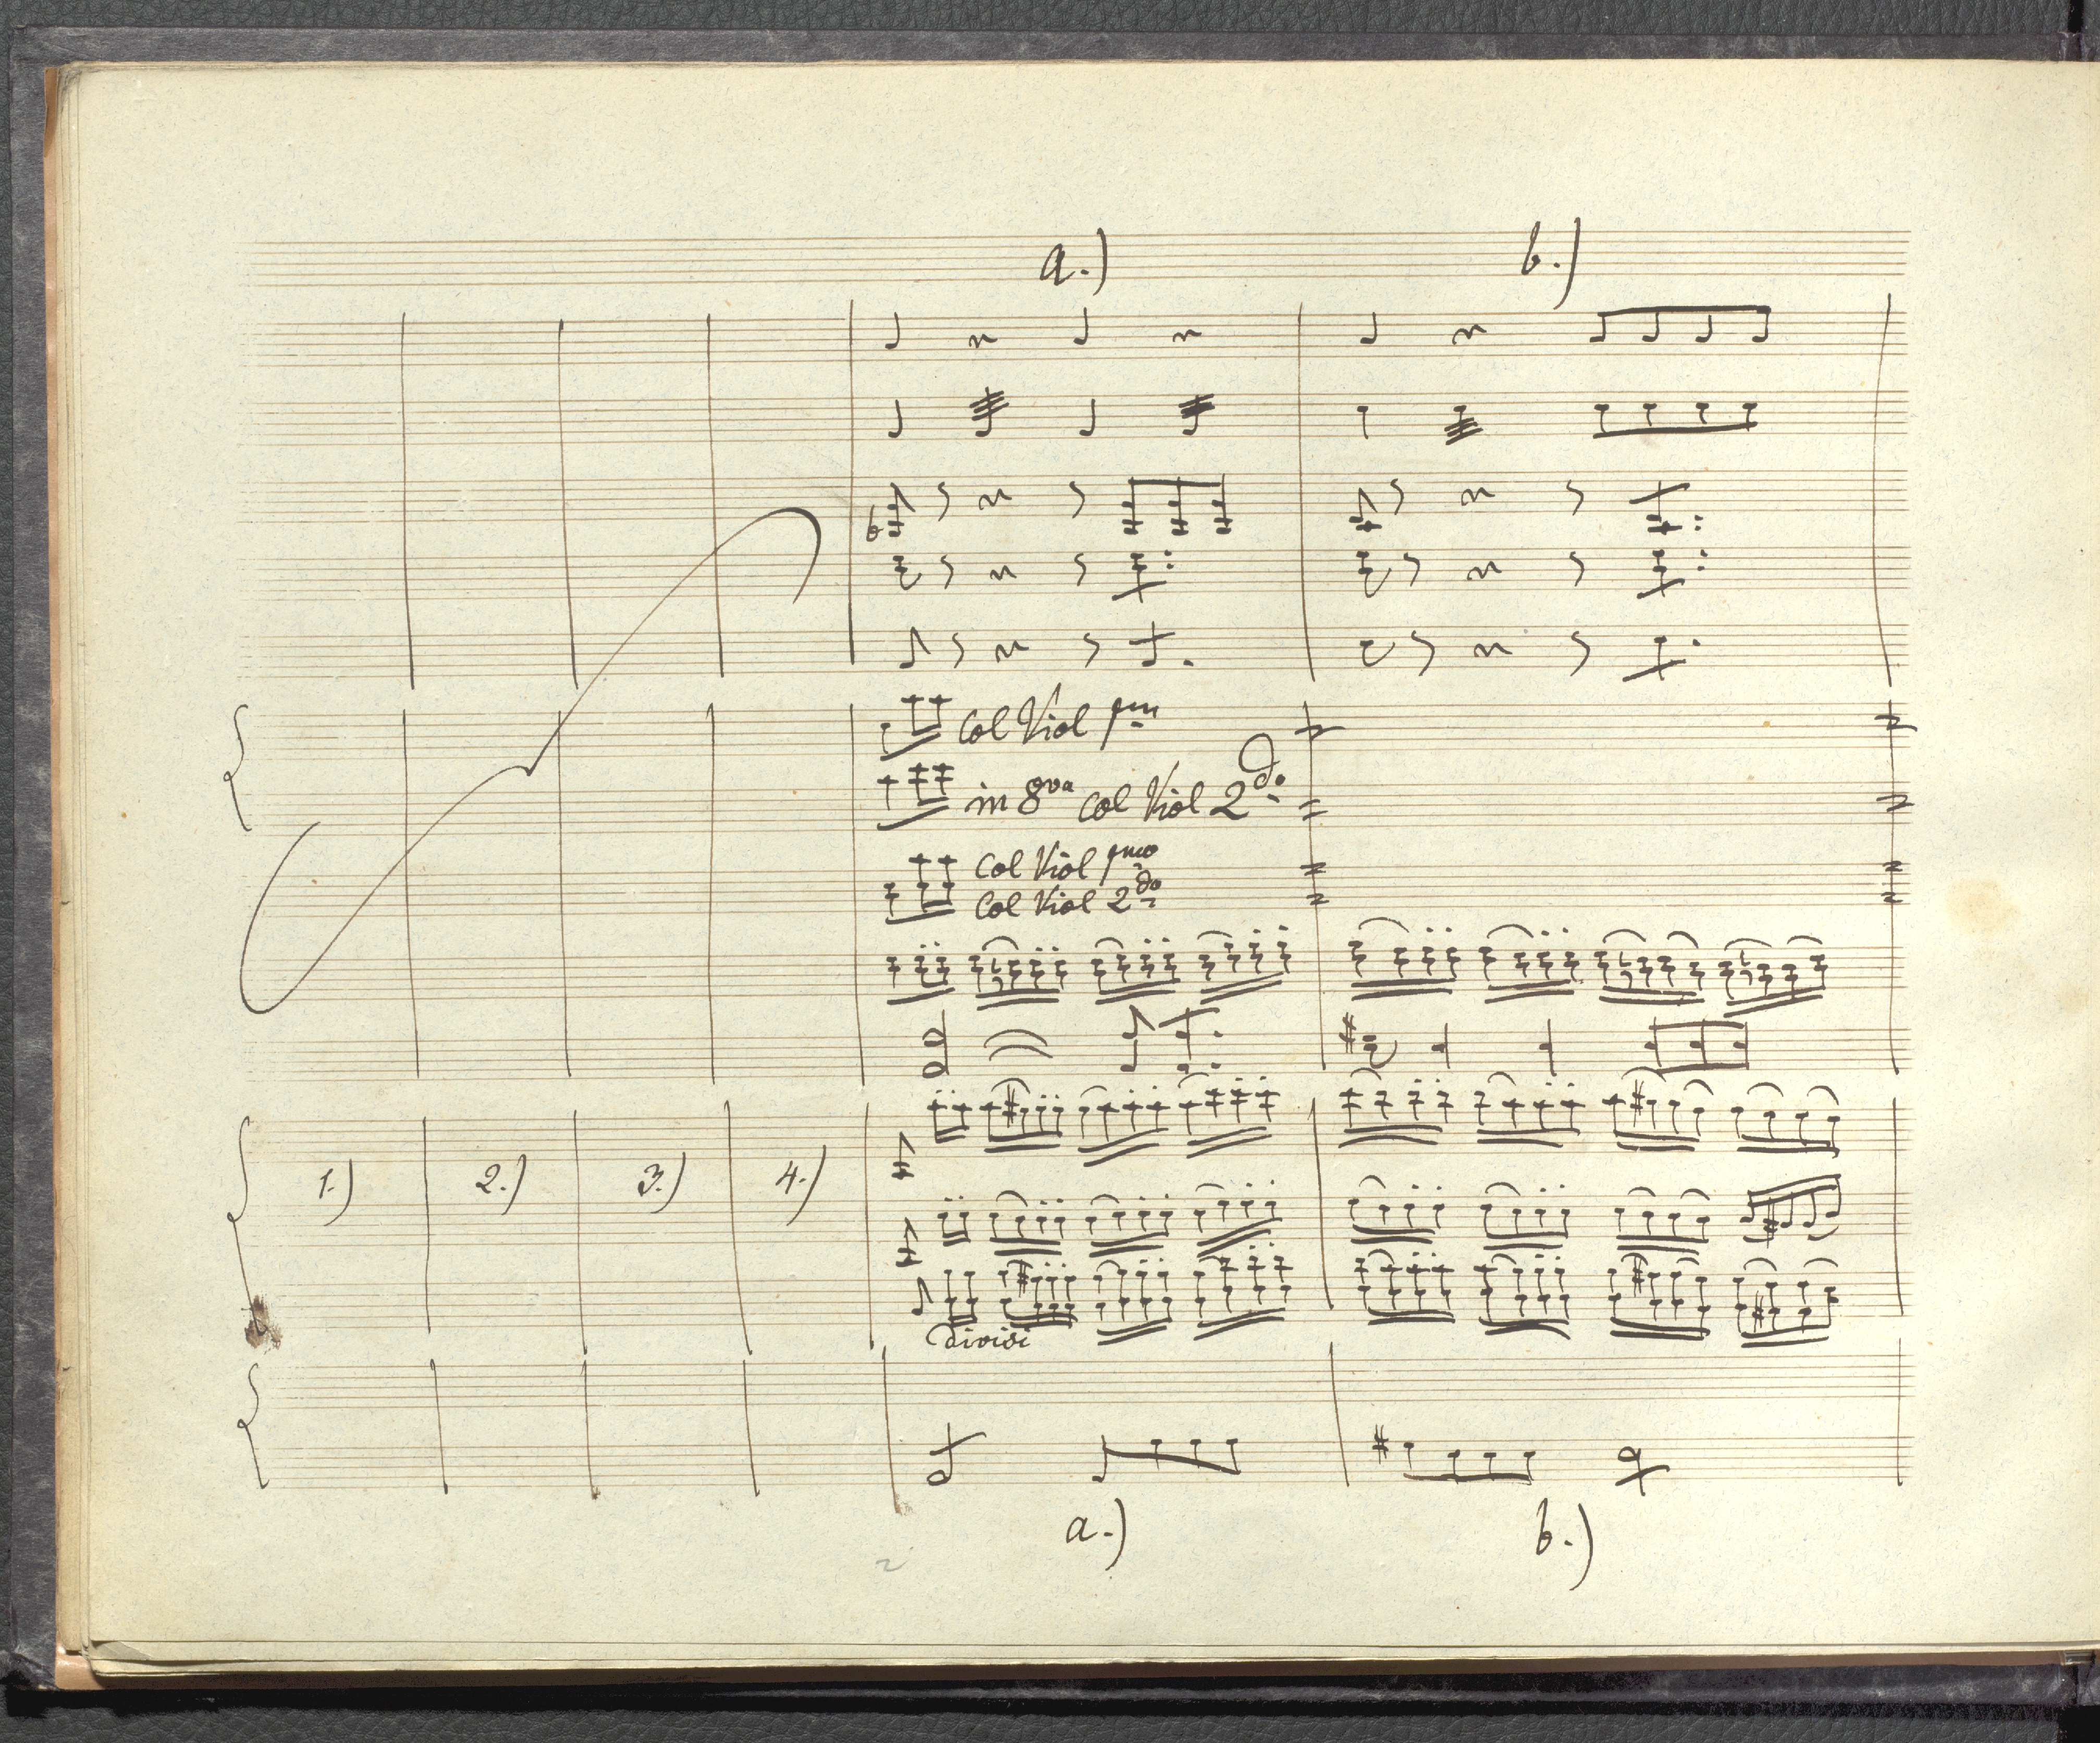 a.) b.)
Col Viol pm
in 8va Col Viol 2do
Col Viol pmo
Col Viol 2do
1.) 2.) 3.) 4.)
divisi
a.) b.)